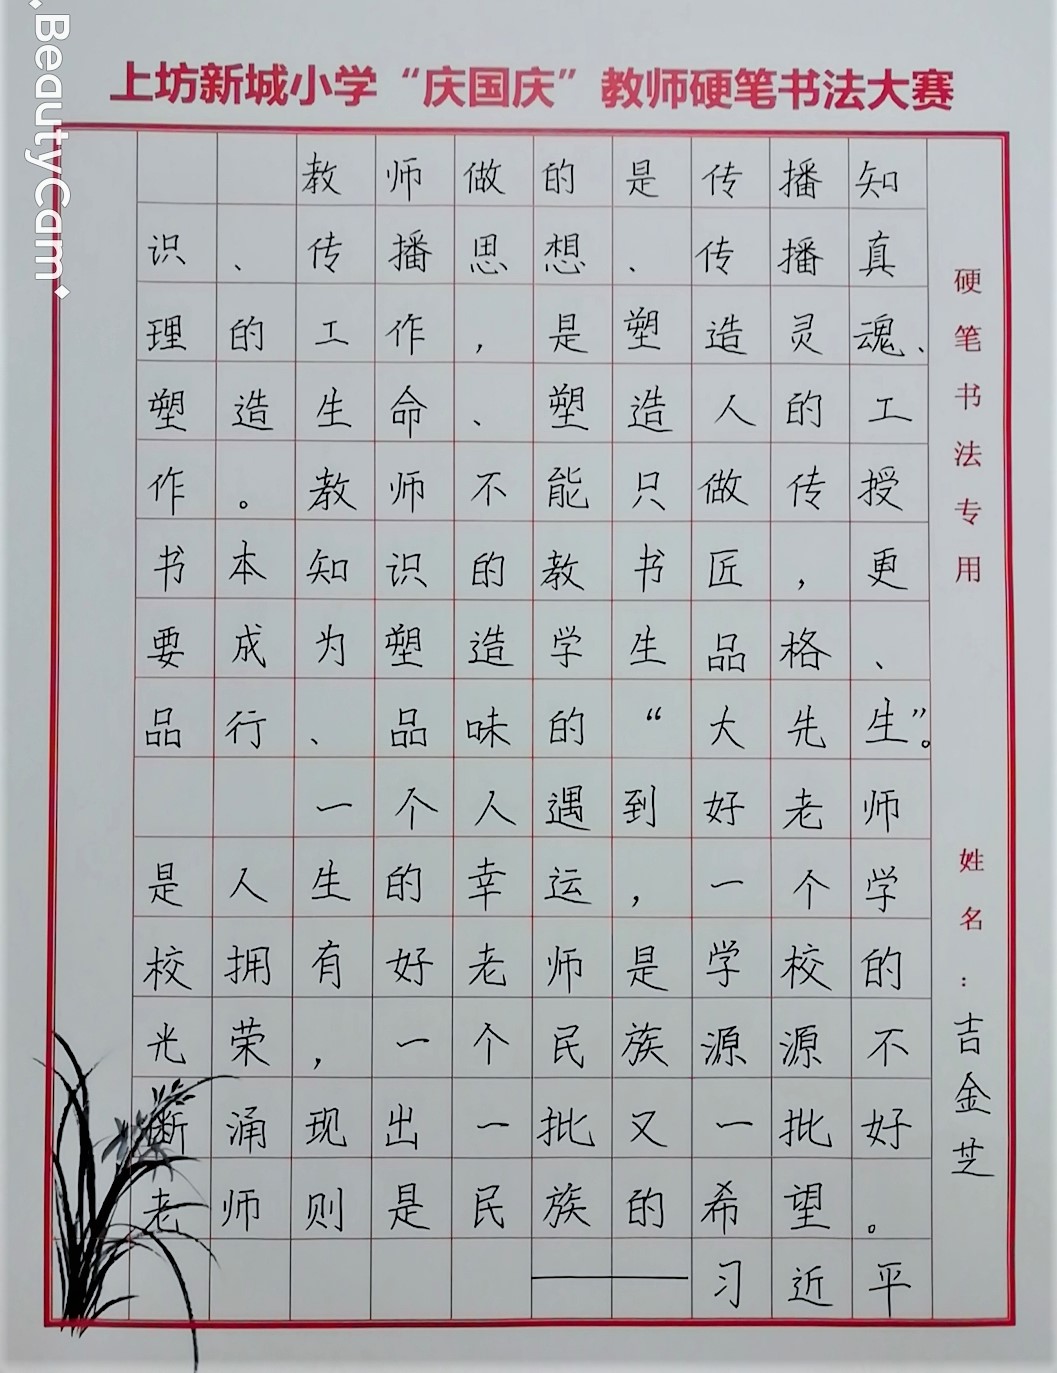 BeautyCam
上坊新城小学“庆国庆”教师硬笔书法大赛
教师做的是传播知
识、传播思想、传播真
理的工作，是塑造灵魂、
塑造生命、塑造人的工
作。教师不能只做传授
书本知识的教书匠，更
要成为塑造学生品格、
品行、品味的“大先生”。
一个人遇到好老师
是人生的幸运，一个学
校拥有好老师是学校的
光荣，一个民族源源不
断涌现出一批又一批好
老师则是民族的希望。
——习近平
硬笔书法专用
姓名：吉金芝